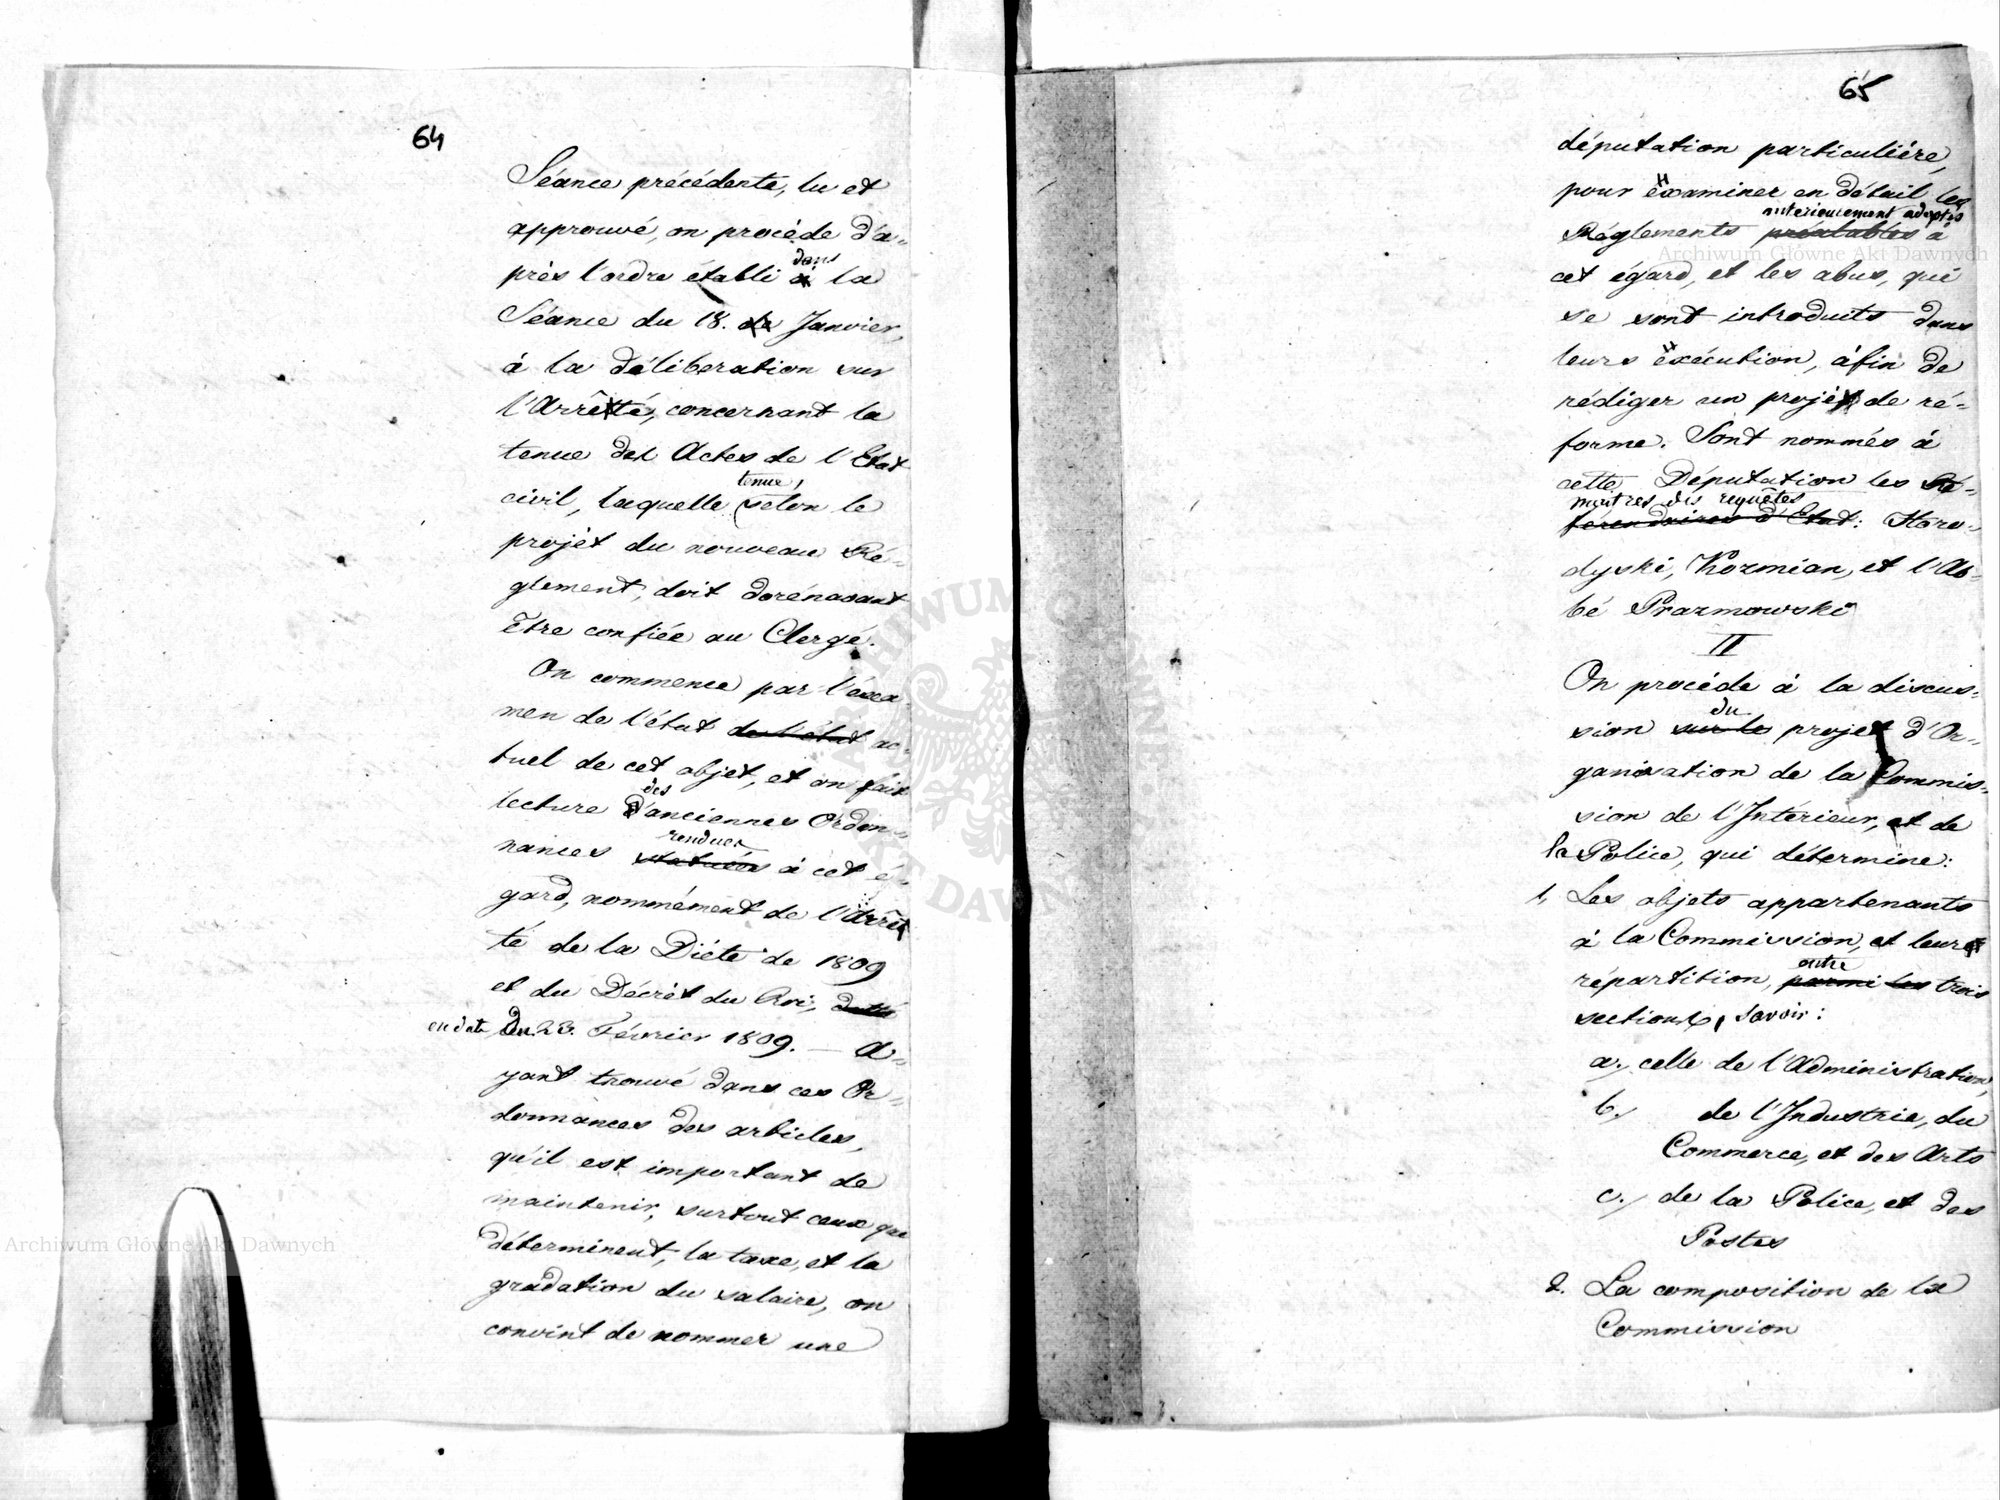 64
Séance précédente, lu et
approuvé, on procède d'a-
près l'ordre établi dans la
Séance du 18. Janvier,
à la déliberation sur
l'Arrêté, concernant la
tenue des Actes de l'Etat
civil, laquelle tenue, selon le
projet du nouveau Ré-
glement, doit dorénavant
être confiée au Clergé.
On commence par l'éxa-
men de l'état de l'état ac-
tuel de cet objet, et on fait
lecture des anciennes Ordon-
nances statuées rendues à cet é-
gard, nommément de l'Arrê-
té de la Diéte de 1809
et du Décrèt du Roi, datté
en date du 23. Février 1809. — A-
yant trouvé dans ces Or-
donnances des articles,
qu'il est important de
maintenir, surtout ceux qui
déterminent, la taxe, et la
gradation du salaire, on
convint de nommer une
65
députation particulière,
pour examiner en détail les
Réglements préalables antérieurement adoptés à
cet égard, et les abus, qui
se sont introduits dans
leurs exécution, àfin de
rédiger un projet de ré-
forme. Sont nommés à
cette Députation les Ré-
férendaires d'Etat maitres des requêtes: Horo-
dyski, Kozmian, et l'Ab-
bé Prazmowski
II
On procéde à la discus-
sion sur le du projet d'Or-
ganisation de la Commis-
sion de l'Intérieur, et de
la Police, qui détermine:
1. Les objets appartenants
à la Commission, et leur
répartition, parmi les entre trois
sections, savoir:
a., celle de l'Administration,
b., de l'Industrie, du
Commerce, et des Arts
c., de la Police, et des
Postes
2. La composition de la
Commission
Archiwum Główne Akt Dawnych
Archiwum Główne Akt Dawnych
ARCHIWUM GŁÓWNE AKT DAWNYCH